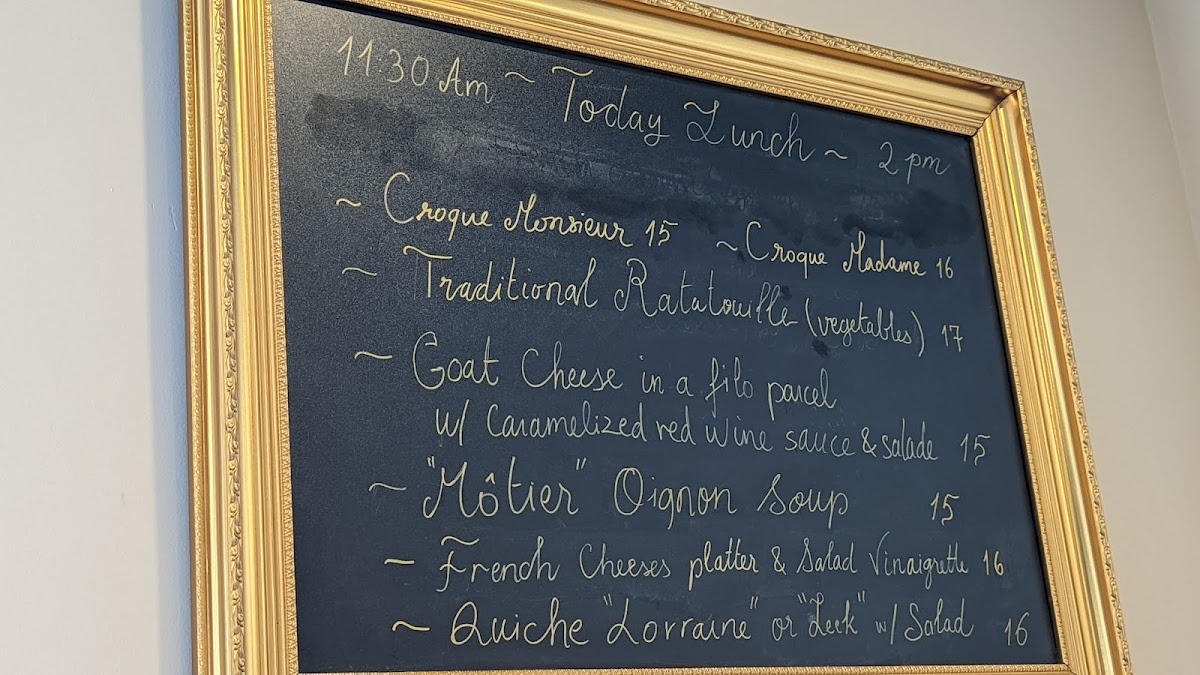 11:30 Am ~ Today Lunch ~ 2 pm
~ Croque Monsieur 15 ~ Croque Madame 16
~ Traditional Ratatouille (vegetables) 17
~ Goat Cheese in a filo parcel
w/ Caramelized red wine sauce & salade 15
~ "Môtier" Oignon Soup 15
~ French Cheeses platter & Salad Vinaigrette 16
~ Quiche "Lorraine" or "Leek" w/ Salad 16